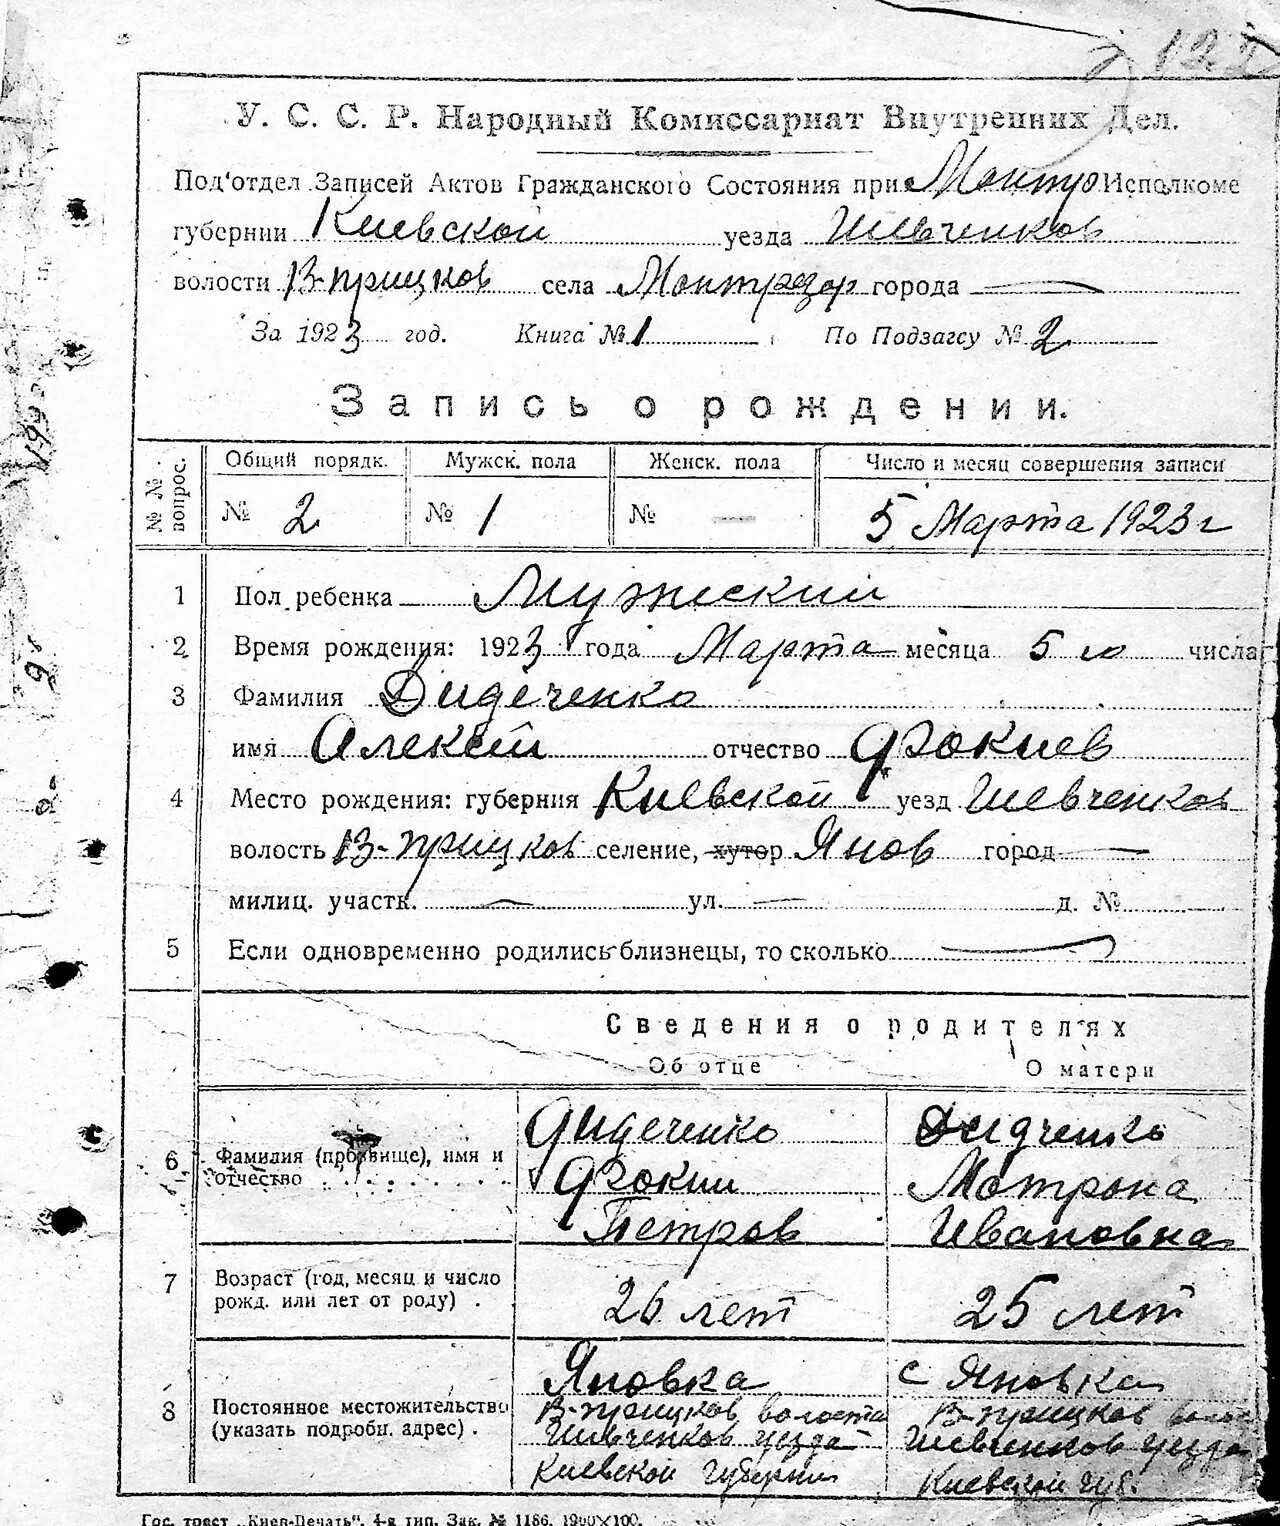 У. С. С. Р. Народный Комиссариат Внутренних Дел.
Под'отдел Записей Актов Гражданского Состояния при Монтр Исполкоме
губернии Киевской уезда Шевченков
волости В-прицков села Монтрезор города —
За 1923 год. Книга № 1 По Подзагсу № 2
Запись о рождении.
№ № вопрос. Общий порядк. Мужск. пола Женск. пола Число и месяц совершения записи
№ 2 № 1 № — 5 Марта 1923 г
1 Пол ребенка Мужеский
2 Время рождения: 1923 года Марта месяца 5 го числа
3 Фамилия Дидеченко
имя Алексей отчество Фокиев
4 Место рождения: губерния Киевской уезд Шевченков
волость В-прицков селение, хутор Янов город —
милиц. участк. — ул. — д. №
5 Если одновременно родились близнецы, то сколько —
Сведения о родителях
Об отце О матери
Дидеченко Дидченко
6 Фамилия (прозвище), имя и отчество Фокий Мотрона
Петров Ивановна
7 Возраст (год, месяц и число рожд. или лет от роду) . 26 лет 25 лет
Яновка с Яновка
8 Постоянное местожительство (указать подробн. адрес) . В-прицков волости В-прицков волос
Шевченков уезда Шевченков уезда
Киевской губернии Киевской губ.
Гос. трест „Киев-Печать“, 4-я тип. Зак. № 1186. 1900×100.